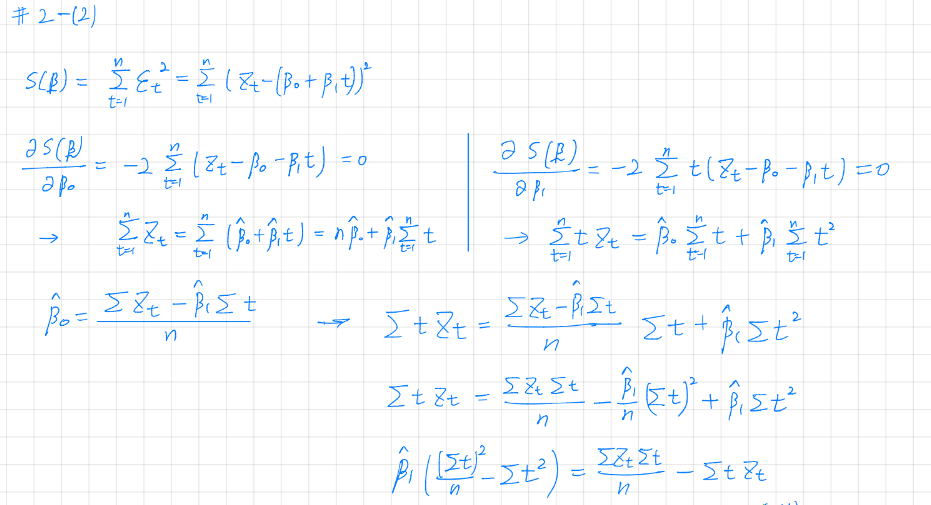 # 2-(2)
S(β) = Σ_{t=1}^{n} ε_t² = Σ_{t=1}^{n} (Z_t-(β₀+β₁t))²
∂S(β)/∂β₀ = -2 Σ_{t=1}^{n} (Z_t-β₀-β₁t) = 0
→ Σ_{t=1}^{n} Z_t = Σ_{t=1}^{n} (β̂₀+β̂₁t) = nβ̂₀+β̂₁Σ_{t=1}^{n} t
∂S(β)/∂β₁ = -2 Σ_{t=1}^{n} t(Z_t-β₀-β₁t) = 0
→ Σ_{t=1}^{n} t Z_t = β̂₀ Σ_{t=1}^{n} t + β̂₁ Σ_{t=1}^{n} t²
β̂₀ = (ΣZ_t - β̂₁Σt)/n → Σt Z_t = (ΣZ_t-β̂₁Σt)/n Σt + β̂₁Σt²
Σt Z_t = (ΣZ_t Σt)/n - β̂₁/n (Σt)² + β̂₁Σt²
β̂₁((Σt)²/n - Σt²) = (ΣZ_t Σt)/n - Σt Z_t